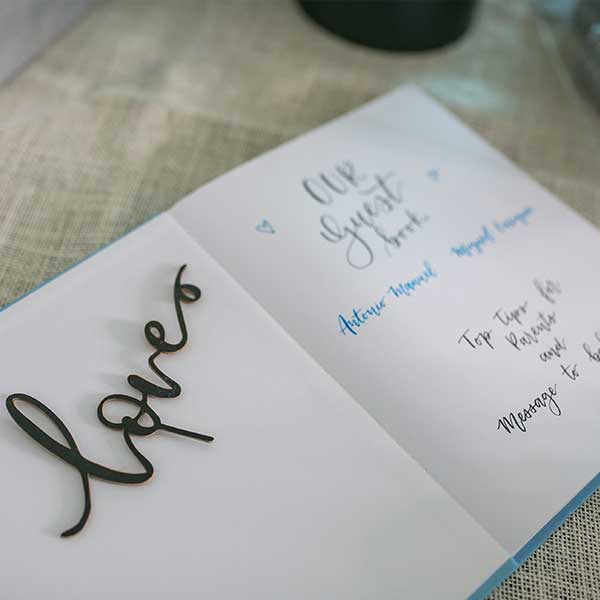 love
OUR
Guest
book
Antonio Manuel
Miguel
Top Tips for
Parents
and
Message to